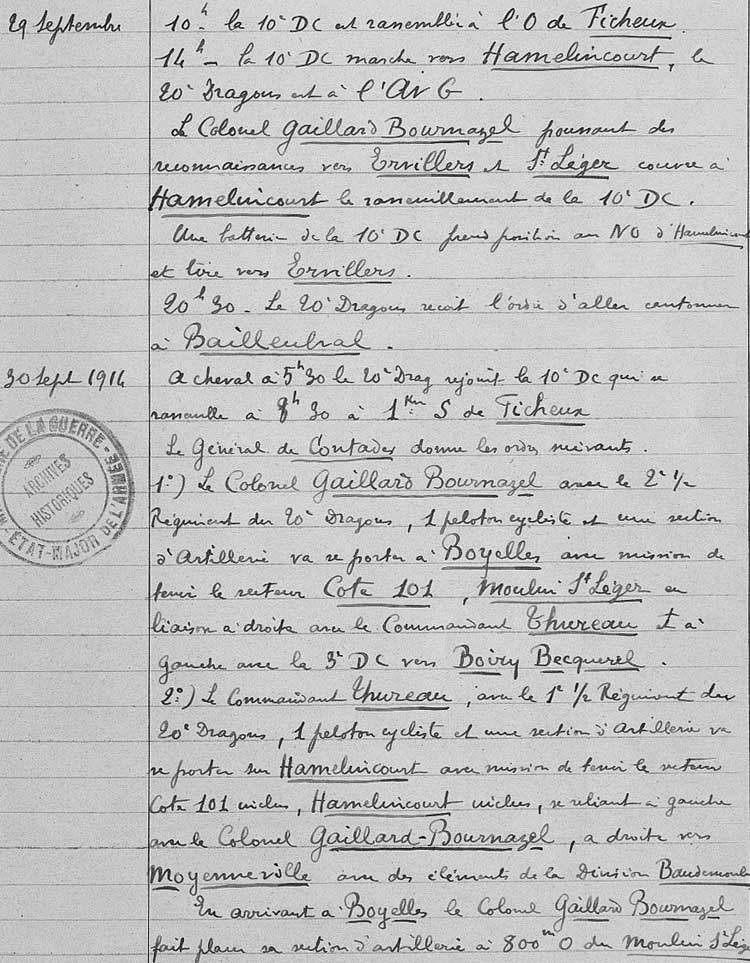 29 Septembre
10h - la 10e DC est rassemblée à l'O de Ficheux.
14h - la 10e DC marche vers Hamelincourt, le
20e Dragons est à l'Av G.
Le Colonel Gaillard Bournazel poussant des
reconnaissances vers Ervillers et St Léger couvre à
Hamelincourt le rassemblement de la 10e DC.
Une batterie de la 10e DC prend position au NO d'Hamelincourt
et tire vers Ervillers.
20h30 - Le 20e Dragons reçoit l'ordre d'aller cantonner
à Bailleulval.
30 Sept 1914
A cheval à 5h30 le 20e Drag rejoint la 10e DC qui se
rassemble à 8h30 à 1Km S de Ficheux
Le Général de Contades donne les ordres suivants.
1°) Le Colonel Gaillard Bournazel avec le 2e 1/2
Régiment du 20e Dragons, 1 peloton cycliste et une section
d'Artillerie va se porter à Boyelles avec mission de
tenir le secteur Cote 101, Moulin St Léger en
liaison à droite avec le Commandant Thureau et à
gauche avec la 3e DC vers Boiry Becquerel.
2°) Le Commandant Thureau, avec le 1e 1/2 Régiment du
20e Dragons, 1 peloton cycliste et une section d'Artillerie va
se porter sur Hamelincourt avec mission de tenir le secteur
Cote 101 inclus, Hamelincourt inclus, se reliant à gauche
avec le Colonel Gaillard-Bournazel, à droite vers
Moyenneville avec des éléments de la Division
En arrivant à Boyelles le Colonel Gaillard Bournazel
fait placer sa section d'artillerie à 800m O du Moulin St Lége
DE LA GUERRE
ARCHIVES
HISTORIQUES
ETAT-MAJOR DE L'ARMEE